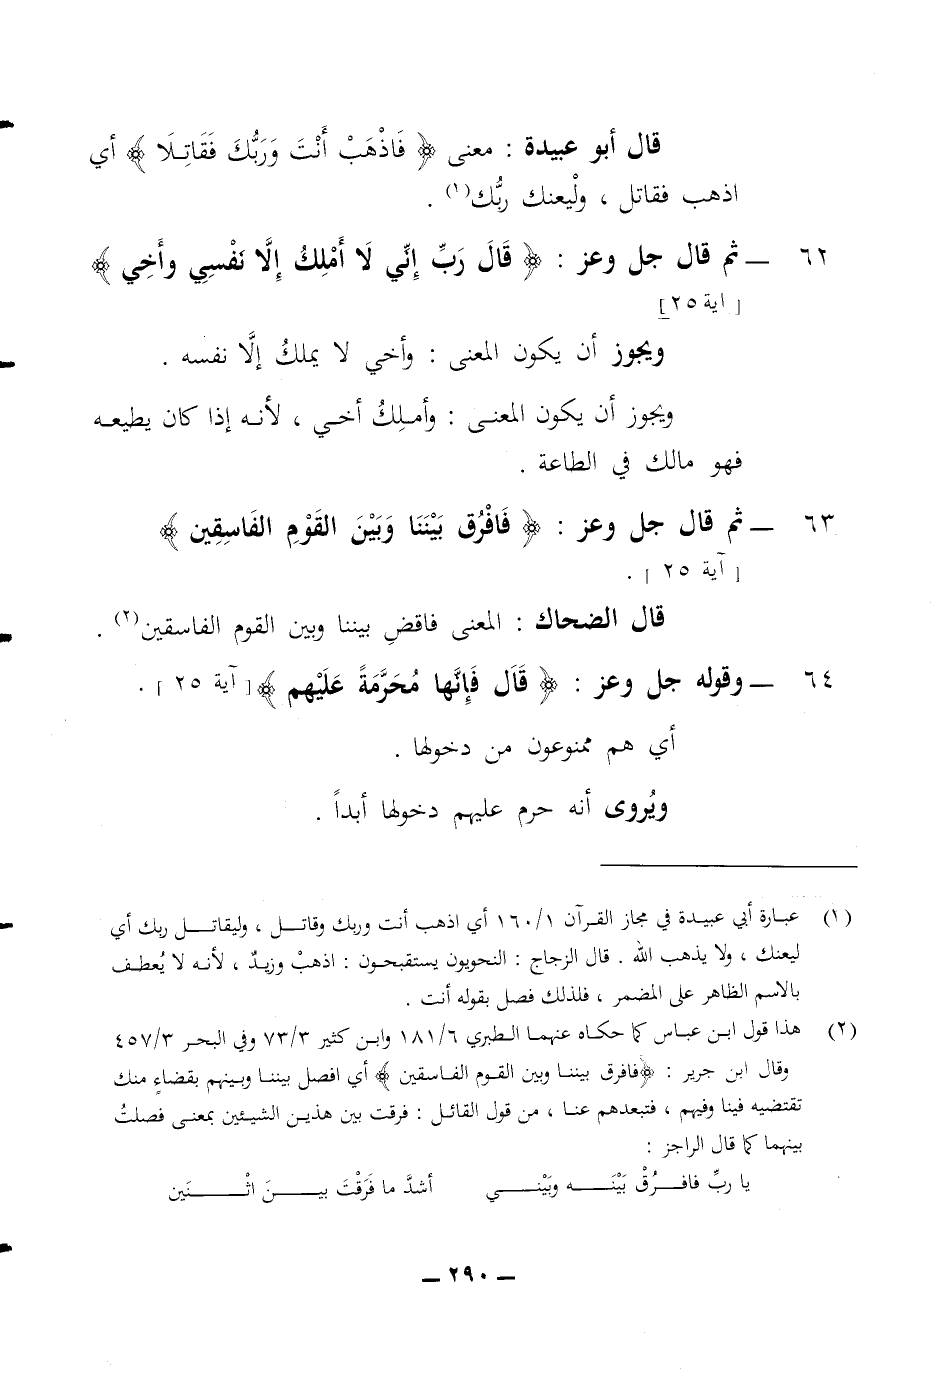 قال أبو عبيدة : معنى ﴿ فَاذْهَبْ أَنْتَ وَرَبُّكَ فَقَاتِلَا ﴾ أي
اذهب فقاتل ، ولْيعنك ربُّك(١) .
٦٢ ــ ثم قال جل وعز : ﴿ قَالَ رَبِّ إِنِّي لَا أَمْلِكُ إِلَّا نَفْسِي وأَخِي ﴾
[ اية ٢٥]
ويجوز أن يكون المعنى : وأخي لا يملكُ إلَّا نفسه .
ويجوز أن يكون المعنـى : وأملِكُ أخـي ، لأنـه إذا كان يطيعـه
فهو مالك في الطاعة .
٦٣ ــ ثم قال جل وعز : ﴿ فَافْرُق بَيْنَنَا وَبَيْنَ القَوْمِ الفَاسِقِين ﴾
[ آية ٢٥ ] .
قال الضحاك : المعنى فاقضِ بيننا وبين القوم الفاسقين(٢) .
٦٤ ــ وقوله جل وعز : ﴿ قَالَ فَإِنَّها مُحَرَّمَةً عَلَيْهم ﴾ [ آية ٢٥ ] .
أي هم ممنوعون من دخولها .
ويُروى أنه حرم عليهم دخولها أبداً .
(١) عبـارة أبي عبيـدة في مجاز القـرآن ١٦٠/١ أي اذهب أنت وربك وقاتـل ، وليقاتـل ربك أي
ليعنك ، ولا يذهب الله . قال الزجاج : النحويون يستقبحون : اذهبْ وزيدٌ ، لأنـه لا يُعطـف
بالاسم الظاهر على المضمر ، فلذلك فصل بقوله أنت .
(٢) هذا قول ابـن عباس كما حكـاه عنهمـا الـطبري ١٨١/٦ وابـن كثير ٧٣/٣ وفي البحر ٤٥٧/٣
وقال ابن جرير : ﴿فافرق بيننـا وبين القـوم الفـاسقين ﴾ أي افصل بيننـا وبينهم بقضـاءٍ منك
تقتضيه فينا وفيهم ، فتبعدهم عنـا ، من قول القائل : فرقت بين هذيـن الشيئين بمعنـى فصلتُ
بينهما كما قال الراجز :
يا ربِّ فافـرُقْ بَيْنَـهُ وبَيْنـي أشدَّ ما فَرَقْتَ بيـنَ اثْـنَين
ــ ٢٩٠ ــ